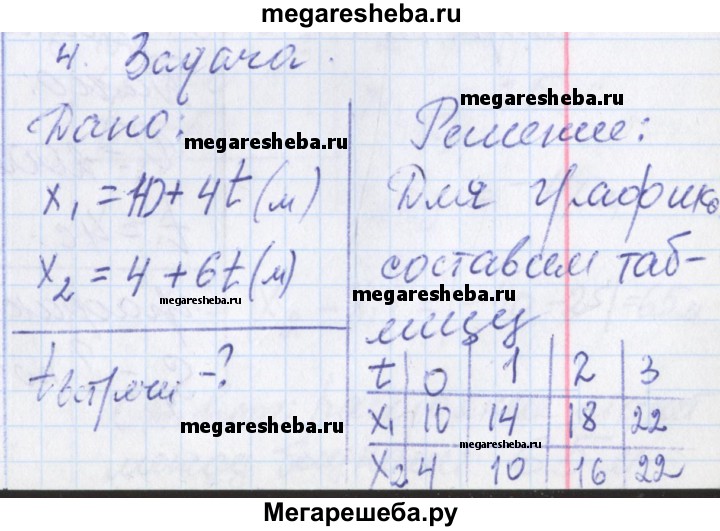 megaresheba.ru
4. Задача.
Дано:
megaresheba.ru
x₁ = 10 + 4t (м)
x₂ = 4 + 6t (м)
megaresheba.ru
tвстречи - ?
megaresheba.ru
megaresheba.ru
Решение:
Для графика
составим таб-
megaresheba.ru
лицу
t | 0 | 1 | 2 | 3
x₁ | 10 | 14 | 18 | 22
megaresheba.ru
x₂ | 4 | 10 | 16 | 22
Мегарешеба.ру